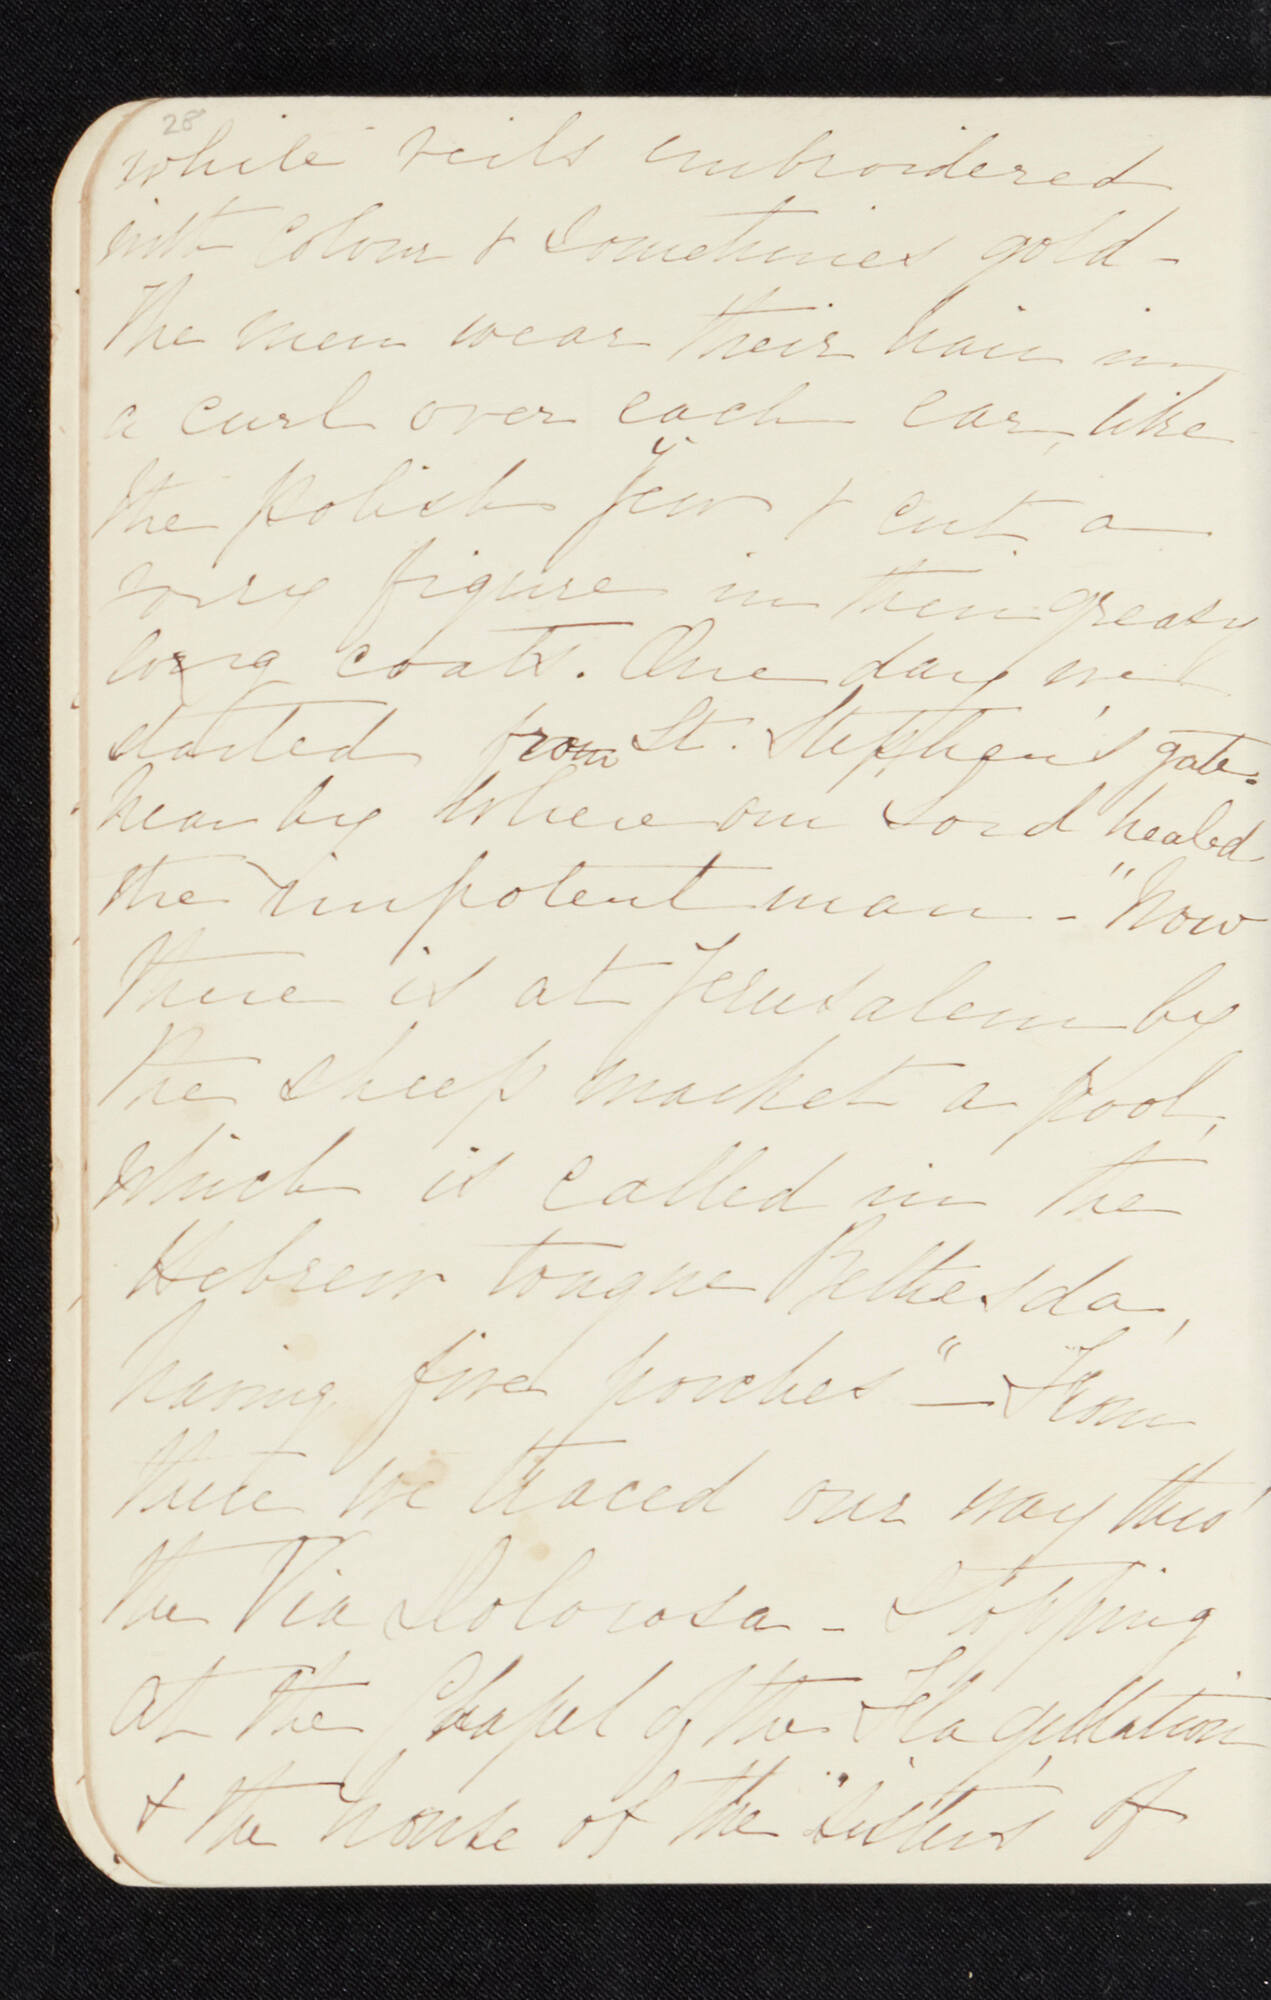 28
white veils embroidered
with colour & sometimes gold -
The men wear their hair in
a curl over each ear, like
the Polish Jew & cut a
sorry figure in their greasy
long coats. One day we
started from St. Stephen's gate.
near by where our Lord healed
the impotent man - "Now
there is at Jerusalem by
the sheep market a pool,
which is called in the
Hebrew tongue Bethesda,
having five porches" - From
there we traced our way thro'
the Via Dolorosa - Stopping
at the Chapel of the Flagellation
& the house of the "Sisters of